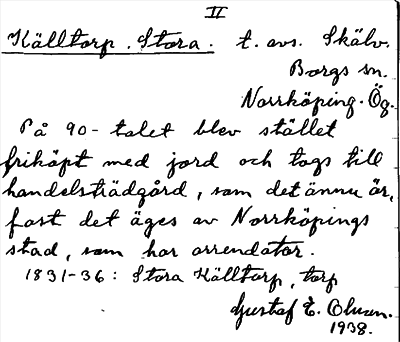 II
Källtorp, Stora. t. avs. Skälv.
Borgs sn.
Norrköping. Ög.
På 90-talet blev stället
friköpt med jord och togs till
handelsträdgård, som det ännu är,
fast det äges av Norrköpings
stad, som har arrendator.
1831-36: Stora Källtorp, torp
Gustaf E. Olsson.
1938.